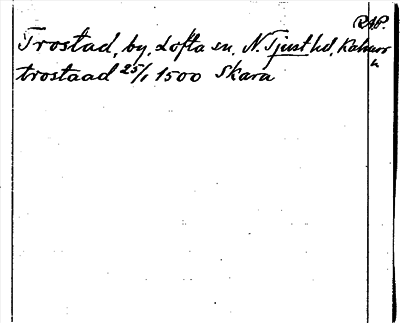 RAP.
Trostad, by, Lofta sn, N. Tjust hd, Kalmar
trostaad 25/1 1500 Skara